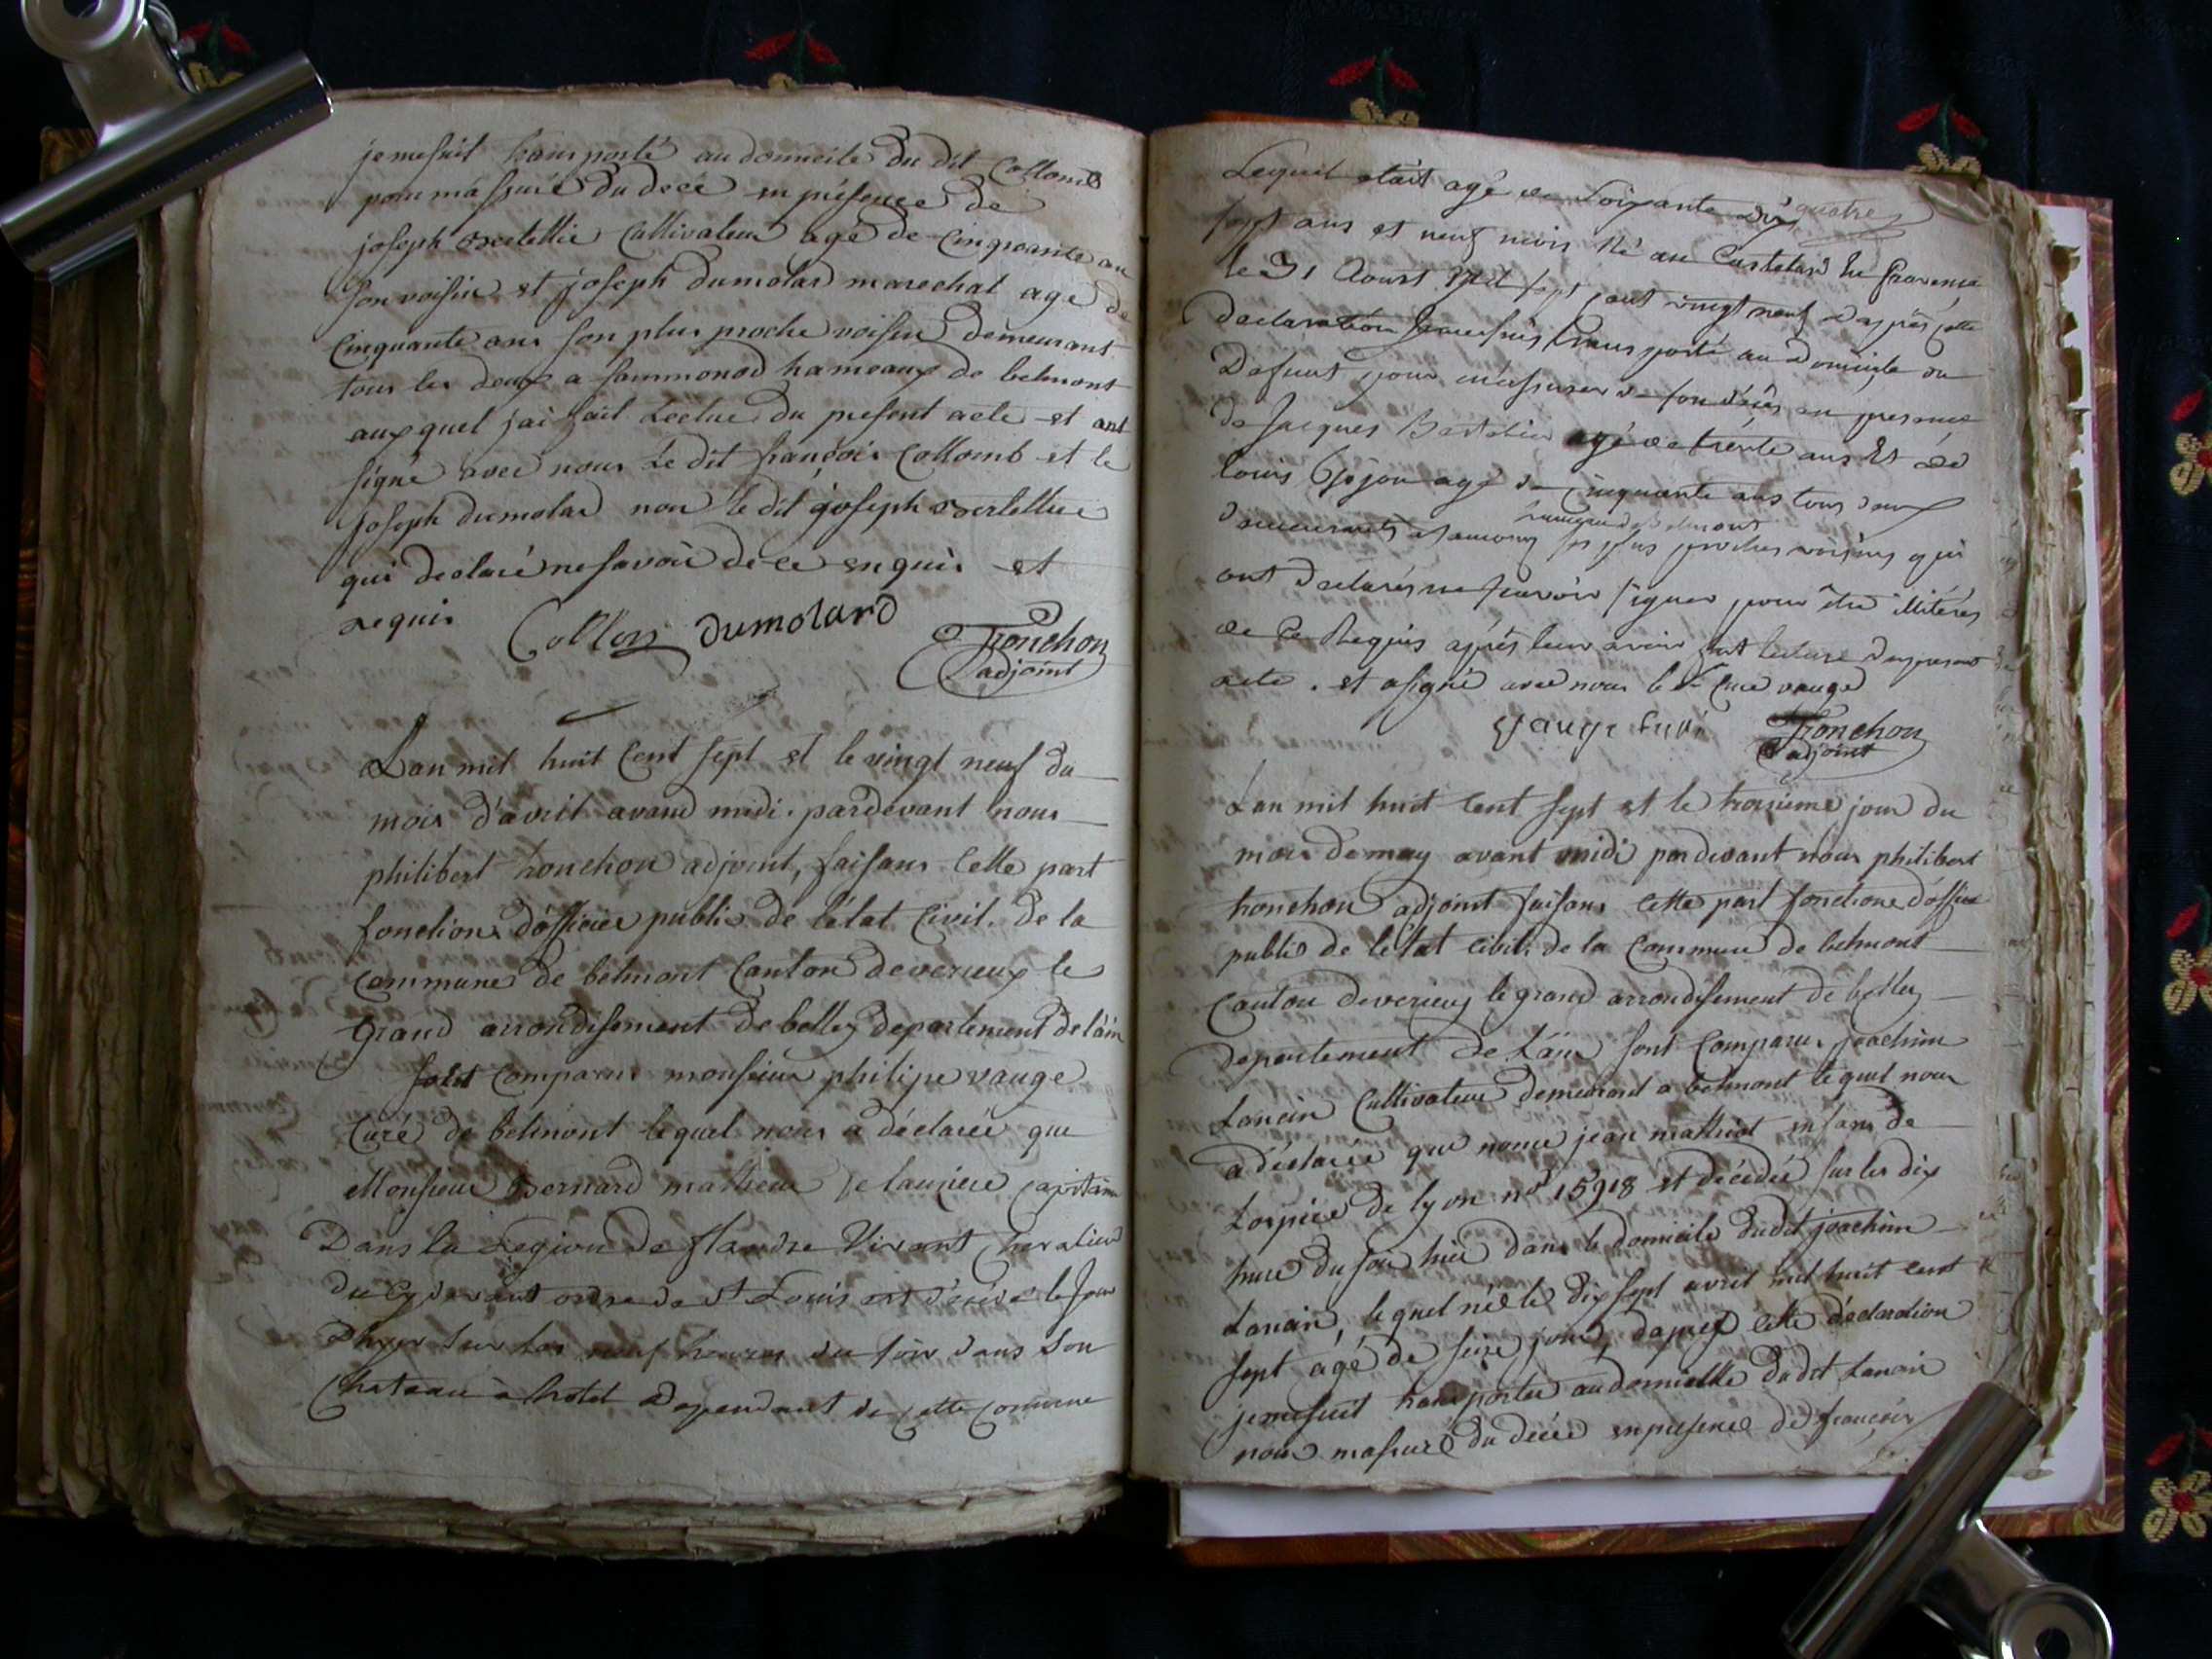 jemesuit transporté au domicile du dit Collomb
pour massuré du decé en présence de
joseph Berthellie Cultivateur agé de Cinquante an
son voisin et joseph dumolar marechal age de
Cinquante ans son plus proche voisin demeurant
tous les deux a sammonod hameaux de belmont
auxquel jai fait Lectue du present acte et ont
signé avec nous Le dit françois Collomb et le
joseph dumolar non le dit joseph Berthellie
qui declaré ne savoir de ce enquis et
requis
Collon dumolard Tronchon
adjoint
Lan mil huit Cent sept et le vingt neuf du
mois d'avril avand midi. pardevant nous
philibert tronchon adjoint, faisans Cette part
fonctions d'officier public de l'état Civil. de la
Commune de belmont Canton de verieux le
Grand arrondisement de belley departement de l'ain
sont Comparus monsieur philipe vauge
Curé de belmont lequel nous a déclarée que
Monsieur Bernard mathieu De lauziere capitaine
Dans la Legion de flandre Vivant chevalier
du Cy devant ordre de St Louis est décédé le Jour
Dhyer sur les neuf heures du soir dans son
Chateau à hotel Dependant de cette commune
Lequel etait agé de Soixante dix quatre
sept ans et neuf mois né au Castelar En Provence
le 31 Aoust Mil sept cent vingt neuf d'après cette
declaration Je me suis transporté au domicile du
Defunt pour m'assurer de son décès en presence
de Jacques Bertelier agé de trente ans Et de
louis Gojon agé de Cinquante ans tous deux
hameau de Belmont
demeurants a Samonoz ses plus proches voisins qui
ont declarés ne scavoir signer pour être illitérés
de ce Requis après leur avoir fait lecture du present
acte. et a signé avec nous le Sr Curé vauge
Vauge curé Tronchon
adjoint
Lan mil huit Cent sept et le troisieme jour du
mois de may avant midi pardevant nous philibert
tronchon adjoint faisans Cette part fonctions d'officie
public de l'état Civil. de la Commune de belmont
Canton de verieux le grand arrondisement de belley
departement de L'ain sont Comparus joachim
Lancin Cultivateur demeurant a belmont lequel nous
a déclarée que nomé jean mathiot enfans de
Lospice de lyon no 15918 et décédée sur les dix
hure du soir hier dans le domicile dudit joachim
Lancin, lequel née le dix sept avril mil huit cent
sept agé de seize jours, daprez cette déclaration
jemesuit transportée au domicille dudit Lancin
pour massuré du décée en presence de françois